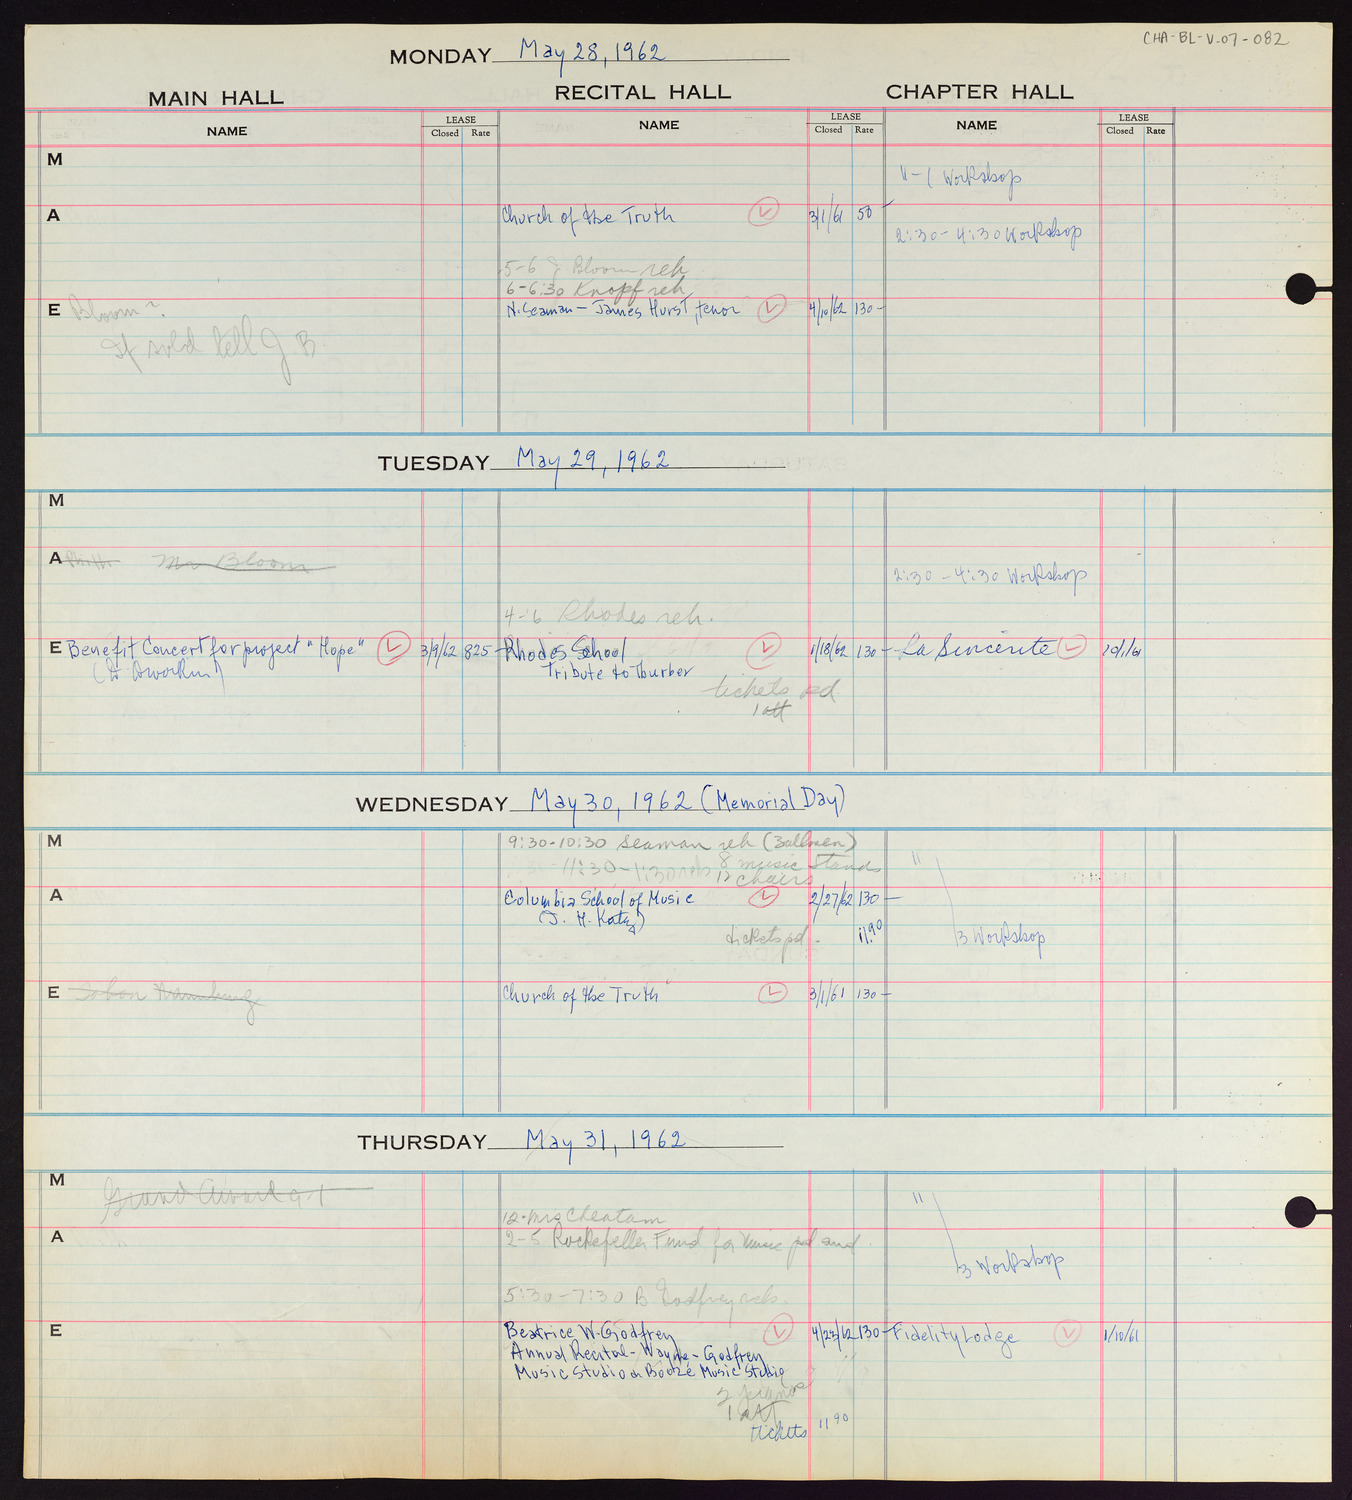 CHA-BL-V.07-082
MONDAY May 28, 1962
MAIN HALL RECITAL HALL CHAPTER HALL
NAME LEASE Closed Rate NAME LEASE Closed Rate NAME LEASE Closed Rate
M
11-1 Workshop
A Church of the Truth 3/1/61 50-
2:30-4:30 Workshop
5-6 J Bloom reh
6-6:30 Knopf reh
E Bloom? N. Seaman - James Hurst, tenor 4/10/62 130-
If sold tell J. B.
TUESDAY May 29, 1962
M
A Mr Bloom
2:30-4:30 Workshop
4-6 Rhodes reh.
E Benefit Concert for project "Hope" 3/9/62 825- Rhodes School 1/18/62 130- La Sincerite 10/1/61
(Dr Dworkin) Tribute to Thurber
tickets pd
1 att
WEDNESDAY May 30, 1962 (Memorial Day)
M 9:30-10:30 Seaman reh (3 allmen)
11:30-1:30 reh 8 music stands
12 chairs
11
A Columbia School of Music 2/27/62 130-
(J. H. Katz)
tickets pd. 11.90
3 Workshop
E Church of the Truth 3/1/61 130-
THURSDAY May 31, 1962
M Grand Award 9-1
11
12-Mrs Cheatam
A 2-5 Rockefeller Fund for Music pd and.
3 Workshop
5:30-7:30 B Godfrey reh.
E Beatrice W. Godfrey 4/23/62 130- Fidelity Lodge 1/10/61
Annual Recital - Wayne - Godfrey
Music Studio or Booze Music Studio
2 pianos
1 att
tickets 11.90